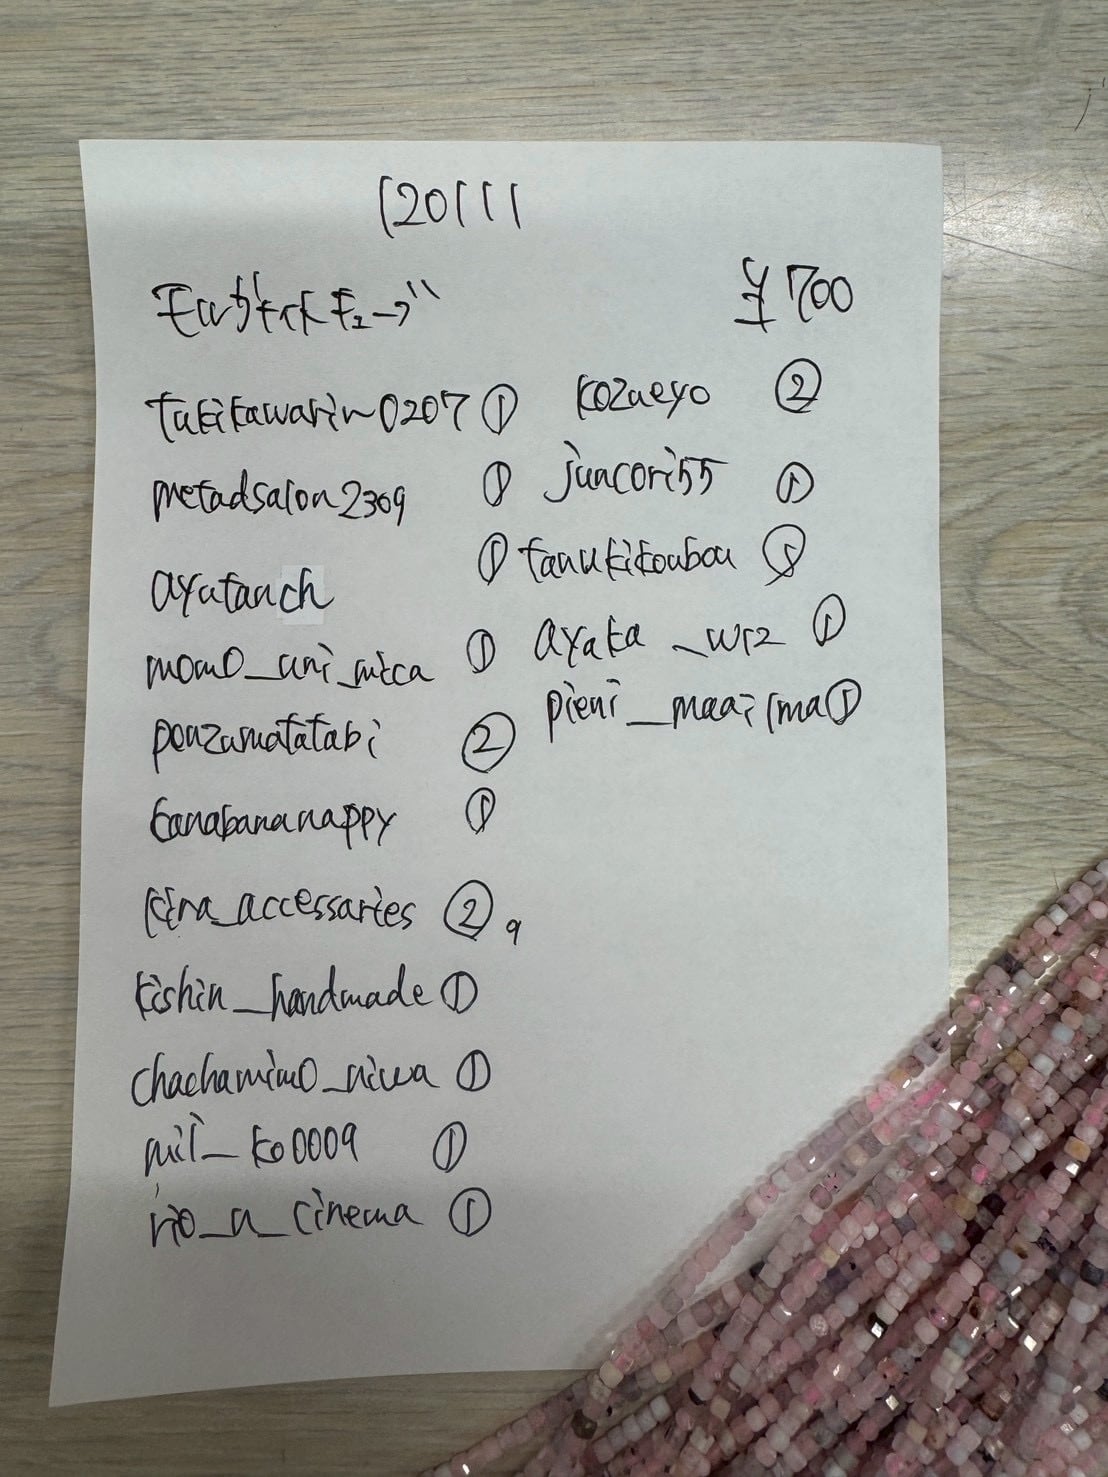 120111
モルガナイトキューブ ¥700
takikawarin0207 ①
metadsalon2309 ①
ayatanch ①
momo_uni_mica ①
ponzumatatabi ②
tanabananappy ①
kira_accessaries ②
kishin_handmade ①
chachamimo_niwa ①
mil_ko0009 ①
rio_a_cinema ①
kozueyo ②
juncori55 ①
tanukikoubou ①
ayaka_wr2 ①
pieni_maailma ①